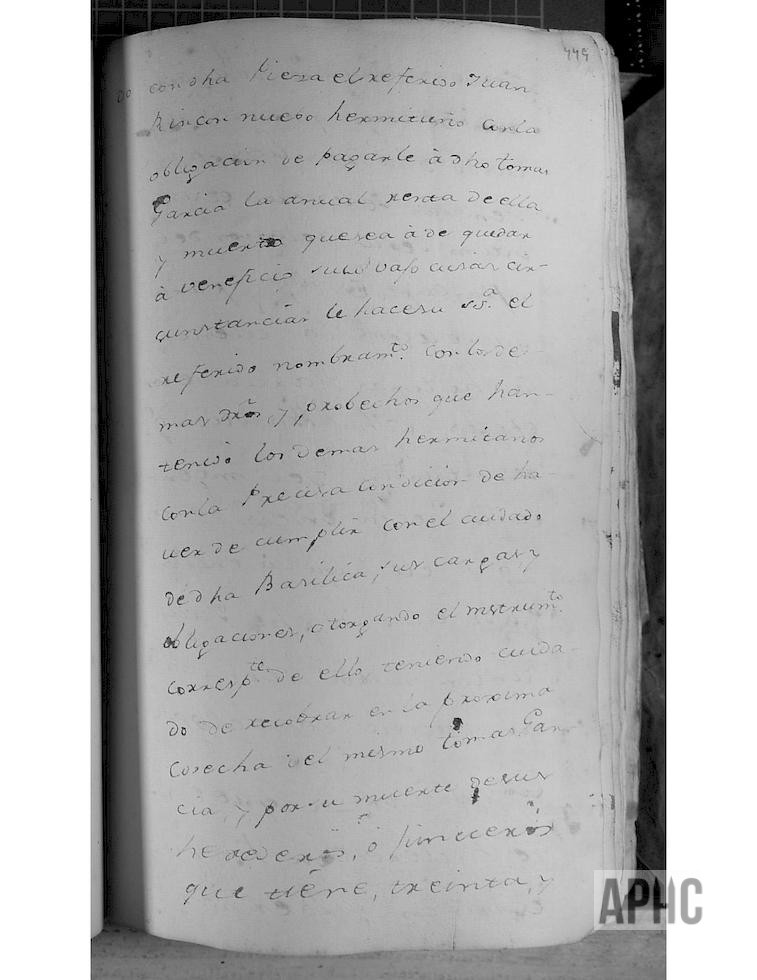 449
do con dha Pieza el referido Juan
Rincon nuebo hermitaño con la
obligacion de pagarle à dho tomas
Garcia la anual renta de ella
y muerto que sea à de quedar
à veneficio suio vajo cuias cir-
cunstancias le hace su ssª. el
referido nombramto. con los de
mas dros, y probechos que han
tenido los demas hermitanos
con la Precisa Condicion de ha
uer de cumplir con el cuidado
de dha Basilica, sus cargas y
obligaciones, otorgando el instrumto.
correspte. de ello teniendo cuida
do de recobrar en la proxima
Cosecha del mismo tomas Gar
cia, y por su muerte de sus
herederos, ò fiadores
que tiene, treinta, y
APHC